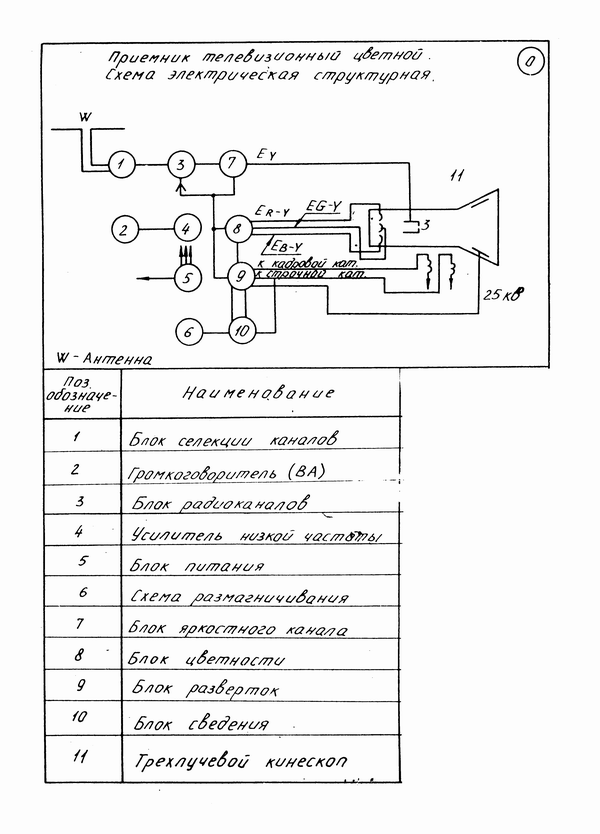 Приемник телевизионный цветной.
Схема электрическая структурная.
0
W
1
3
7
EY
11
2
4
8
ER-Y
EG-Y
EB-Y
3
5
9
к кадровой кат.
к строчной кат.
25 кв
6
10
W - Антенна
Поз. обозначе-ние
Наименование
1 Блок селекции каналов
2 Громкоговоритель (ВА)
3 Блок радиоканалов
4 Усилитель низкой частоты
5 Блок питания
6 Схема размагничивания
7 Блок яркостного канала
8 Блок цветности
9 Блок разверток
10 Блок сведения
11 Трехлучевой кинескоп